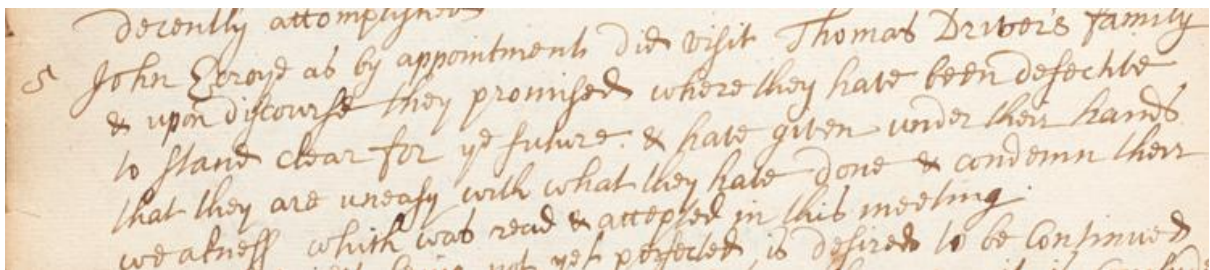 decently accomplished
5 John Ecroyd as by appointment did visit Thomas Driver's family
& upon discourse they promised where they have been defective
to stand clear for ye future. & have given under their hands
that they are uneasy with what they have done & condemn their
weakness which was read & accepted in this meeting.
being not yet perfected is desired to be continued